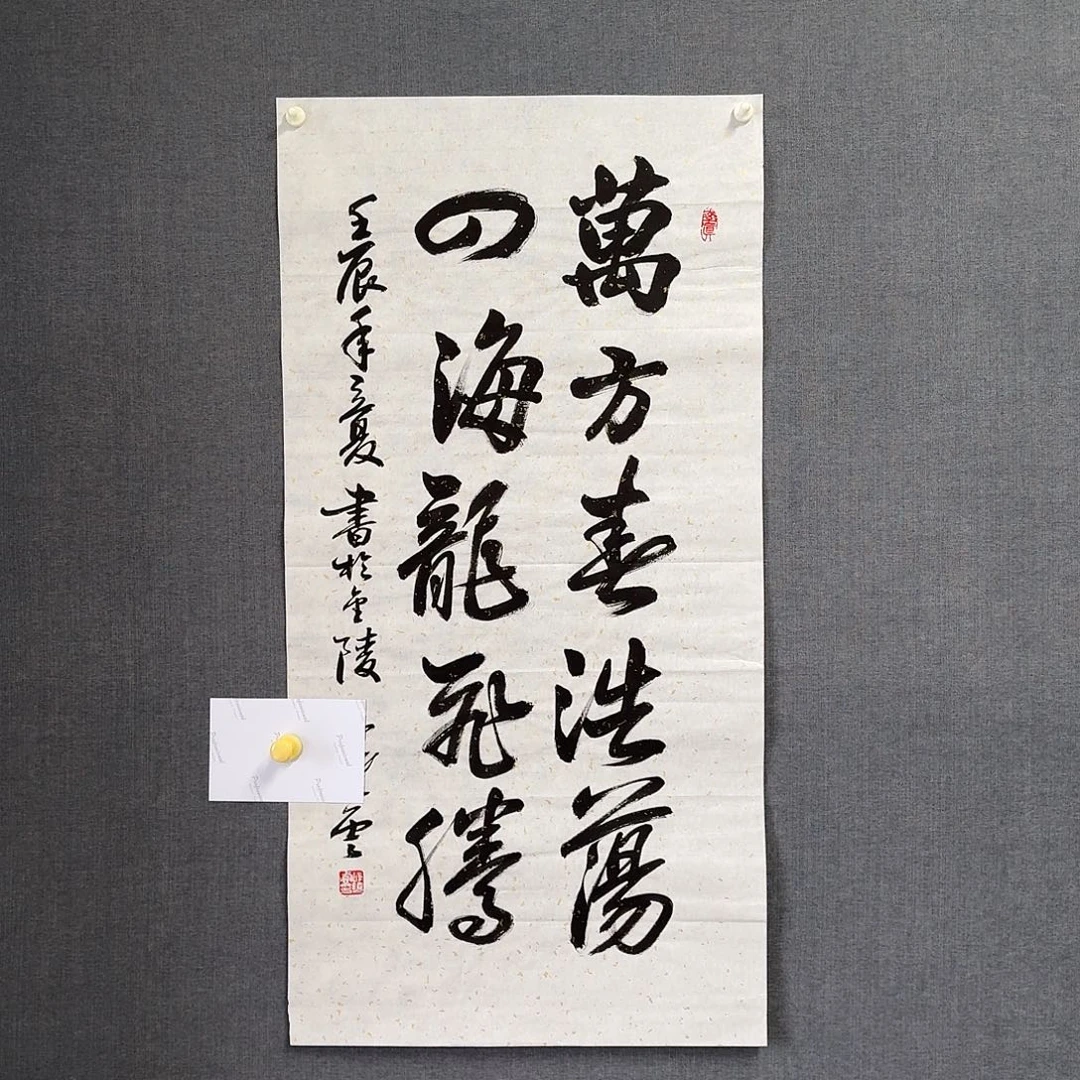 萬方春浩蕩
四海龍飛騰
壬辰年夏書於金陵 雲